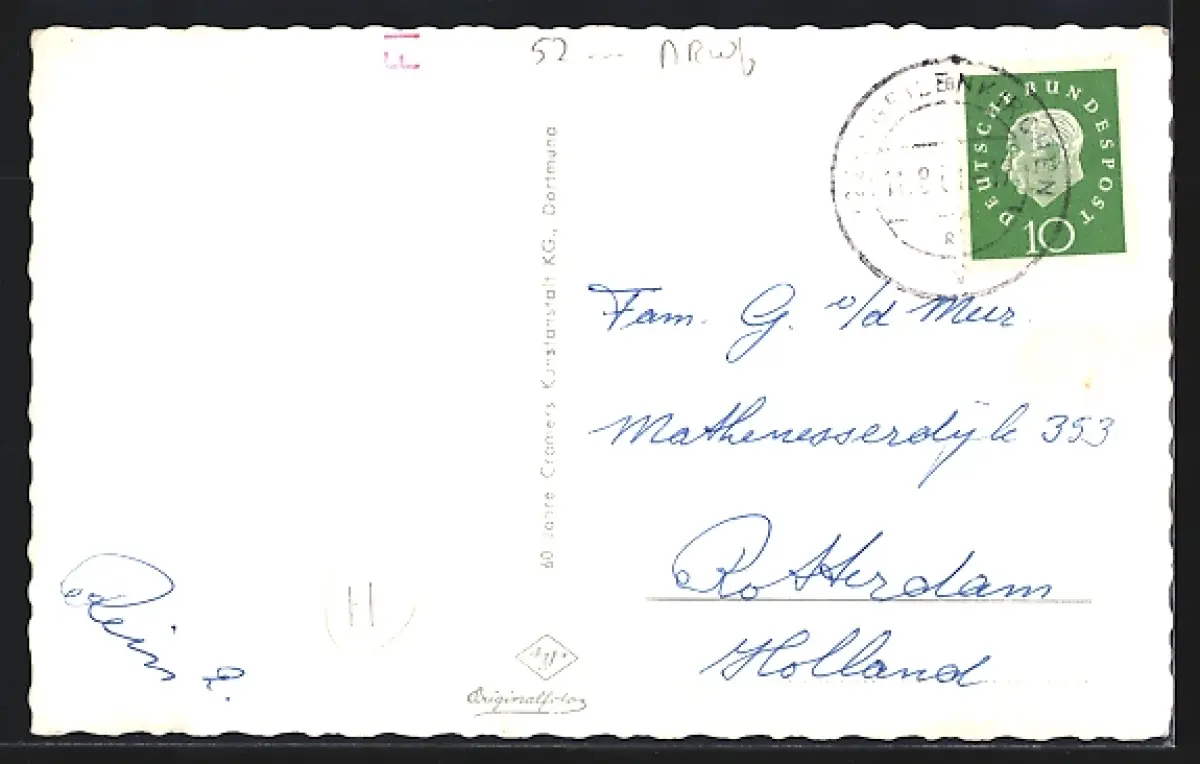 52 --- ARW
DEUTSCHE BUNDESPOST
10
Fam. G. v/d Meer.
Mathenesserdijk 353
Rotterdam
Holland
60 Jahre Cramers Kunstanstalt KG., Dortmund
Originalfoto
H